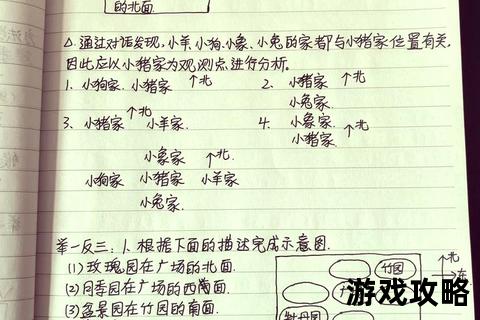 的北面.
△通过对话发现,小羊、小狗、小象、小兔的家都与小猪家位置有关,
因此应以小猪家为观测点,进行分析.
1、小狗家 小猪家 ↑北 2、小猪家 ↑北
小兔家
3、小猪家 ↑北 小羊家 4、小象家 ↑北
小猪家
小象家 ↑北
小狗家 小猪家 小羊家
小兔家
举一反三:1、根据下面的描述完成示意图.
(1)玫瑰园在广场的北面. 竹园 ↑北
(2)月季园在广场的西面 东
(3)盆景园在竹园的南面. 牡丹园
游戏攻略